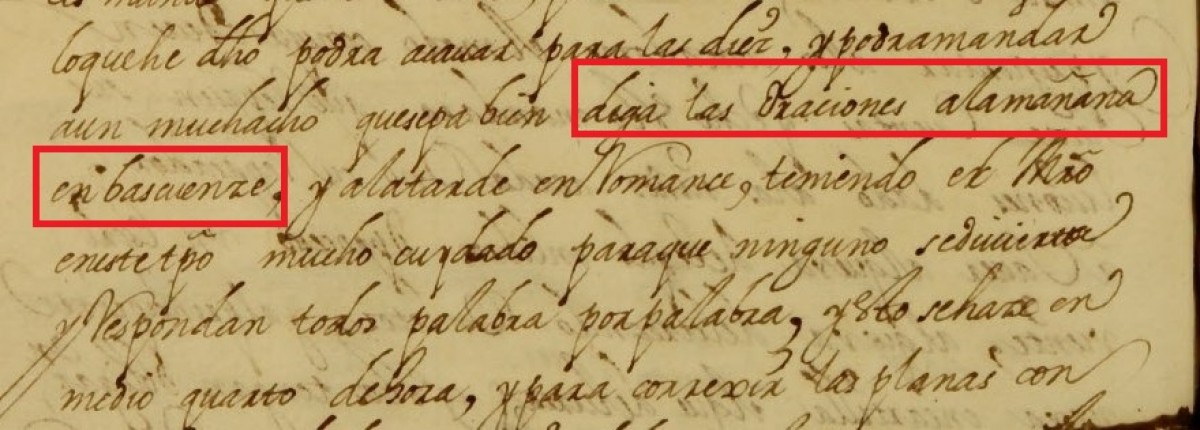 loquehe dho podra acavar para las diez, y podramandar
aun muchacho quesepa bien diga las oraciones alamañana
en bascuenze, y alatarde en Romance, teniendo el Mrõ
eneste tpõ mucho cuydado paraque ninguno sedivierta
y Respondan todos palabra porpalabra, yesto sehaze en
medio quarto dehora, ypara correxir las planas con